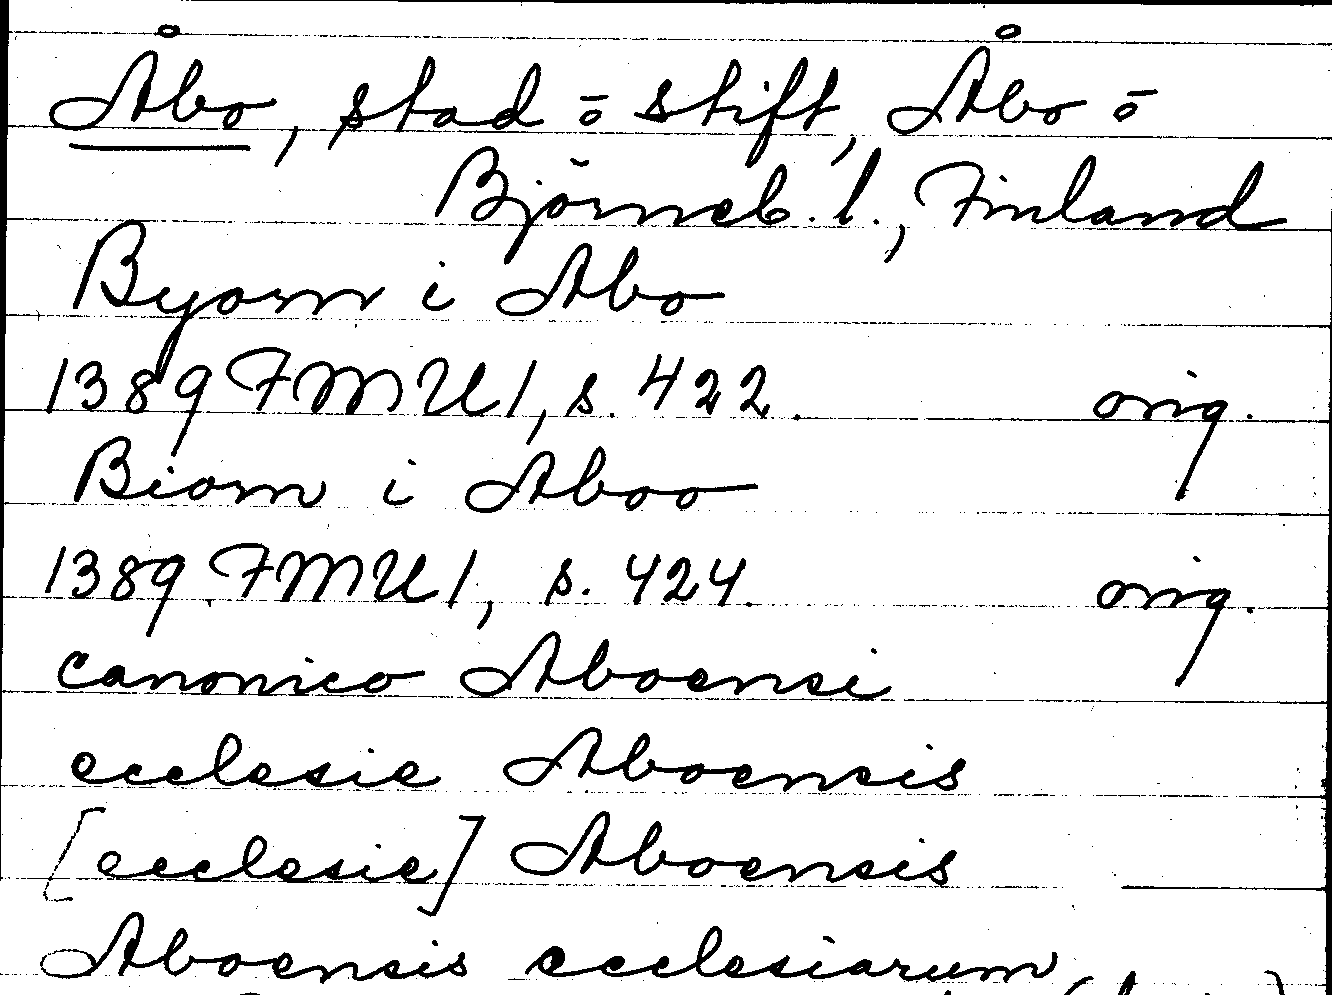 Åbo, stad o stift, Åbo o
Björneb. l., Finland
Byorn i Abo
1389 FMU 1, s. 422. orig.
Biorn i Aboo
1389 FMU 1, s. 424. orig.
canonico Aboensi
ecclesie Aboensis
[ecclesie] Aboensis
Aboensis ecclesiarum